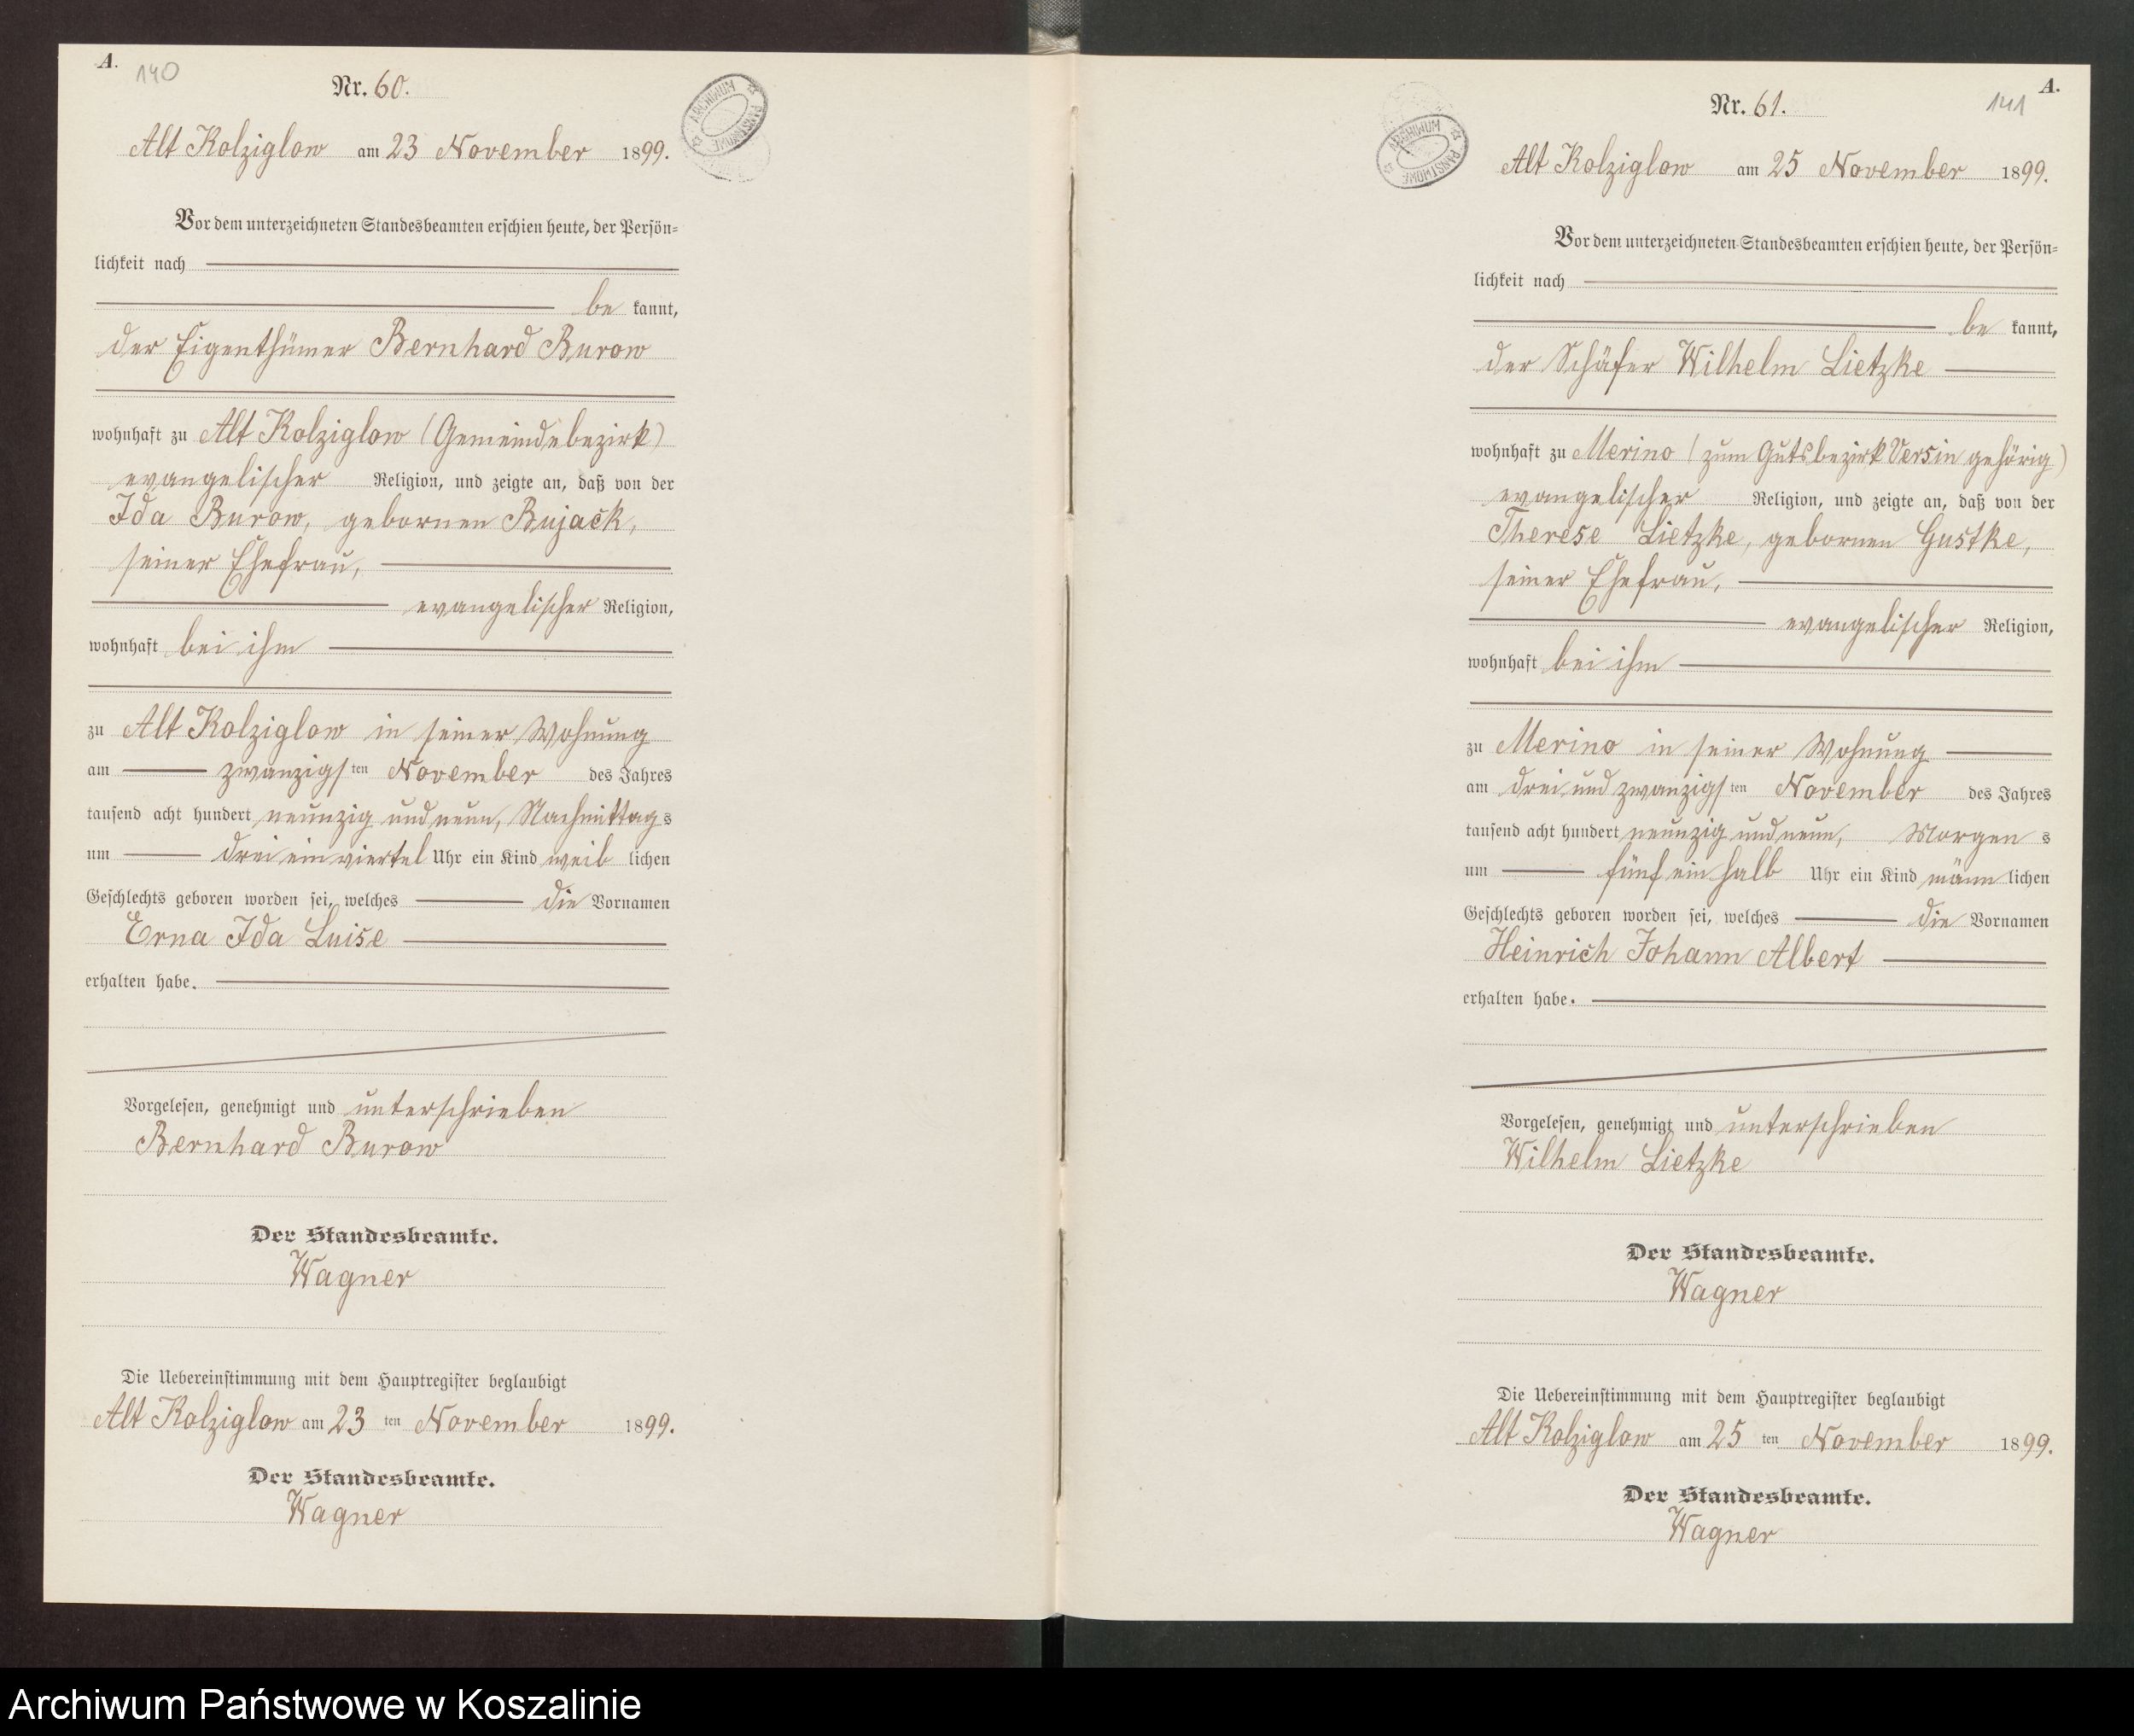 A.
140
Nr. 60.
Alt Kolziglow am 23 November 1899.
Vor dem unterzeichneten Standesbeamten erschien heute, der Persön-
lichkeit nach
be kannt,
der Eigenthümer Bernhard Burow
wohnhaft zu Alt Kolziglow (Gemeindebezirk)
evangelischer Religion, und zeigte an, daß von der
Ida Burow, gebornen Bujack,
seiner Ehefrau,
evangelischer Religion,
wohnhaft bei ihm
zu Alt Kolziglow in seiner Wohnung
am zwanzigsten November des Jahres
tausend acht hundert neunzig und neun, Nachmittags
um drei ein viertel Uhr ein Kind weiblichen
Geschlechts geboren worden sei, welches die Vornamen
Erna Ida Luise
erhalten habe.
Vorgelesen, genehmigt und unterschrieben
Bernhard Burow
Der Standesbeamte.
Wagner
Die Uebereinstimmung mit dem Hauptregister beglaubigt
Alt Kolziglow am 23 ten November 1899.
Der Standesbeamte.
Wagner
ARCHIWUM PAŃSTWOWE
A.
141
Nr. 61.
Alt Kolziglow am 25 November 1899.
Vor dem unterzeichneten Standesbeamten erschien heute, der Persön-
lichkeit nach
be kannt,
der Schäfer Wilhelm Lietzke
wohnhaft zu Merino (zum Gutsbezirk Versin gehörig)
evangelischer Religion, und zeigte an, daß von der
Therese Lietzke, gebornen Gustke,
seiner Ehefrau,
evangelischer Religion,
wohnhaft bei ihm
zu Merino in seiner Wohnung
am drei und zwanzigsten November des Jahres
tausend acht hundert neunzig und neun, Morgens
um fünf ein halb Uhr ein Kind männlichen
Geschlechts geboren worden sei, welches die Vornamen
Heinrich Johann Albert
erhalten habe.
Vorgelesen, genehmigt und unterschrieben
Wilhelm Lietzke
Der Standesbeamte.
Wagner
Die Uebereinstimmung mit dem Hauptregister beglaubigt
Alt Kolziglow am 25 ten November 1899.
Der Standesbeamte.
Wagner
ARCHIWUM PAŃSTWOWE
Archiwum Państwowe w Koszalinie